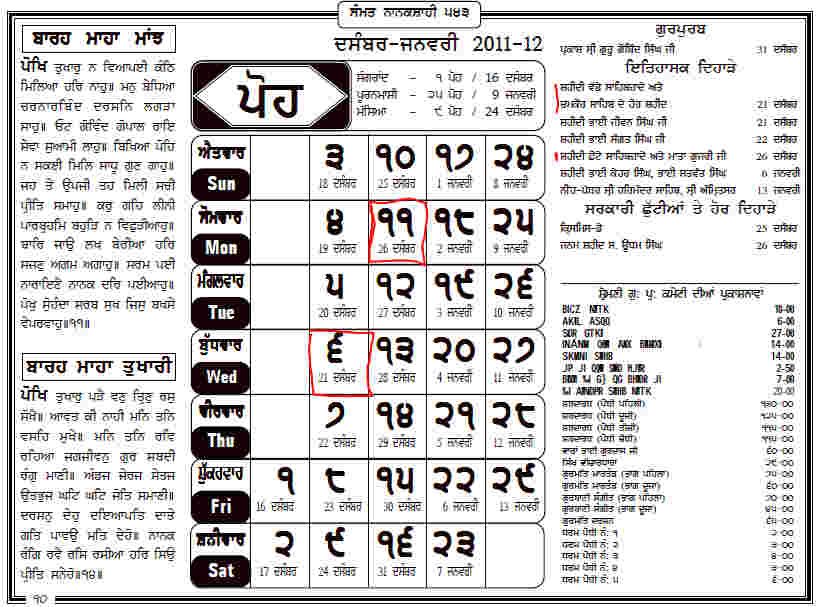 ਸੰਮਤ ਨਾਨਕਸ਼ਾਹੀ ੫੪੩
ਬਾਰਹ ਮਾਹਾ ਮਾਂਝ
ਪੋਖਿ ਤੁਖਾਰੁ ਨ ਵਿਆਪਈ ਕੰਠਿ
ਮਿਲਿਆ ਹਰਿ ਨਾਹੁ॥ ਮਨੁ ਬੇਧਿਆ
ਚਰਨਾਰਬਿੰਦ ਦਰਸਨਿ ਲਗੜਾ
ਸਾਹੁ॥ ਓਟ ਗੋਵਿੰਦ ਗੋਪਾਲ ਰਾਇ
ਸੇਵਾ ਸੁਆਮੀ ਲਾਹੁ॥ ਬਿਖਿਆ ਪੋਹਿ
ਨ ਸਕਈ ਮਿਲਿ ਸਾਧੂ ਗੁਣ ਗਾਹੁ॥
ਜਹ ਤੇ ਉਪਜੀ ਤਹ ਮਿਲੀ ਸਚੀ
ਪ੍ਰੀਤਿ ਸਮਾਹੁ॥ ਕਰੁ ਗਹਿ ਲੀਨੀ
ਪਾਰਬ੍ਰਹਮਿ ਬਹੁੜਿ ਨ ਵਿਛੁੜੀਆਹੁ॥
ਬਾਰਿ ਜਾਉ ਲਖ ਬੇਰੀਆ ਹਰਿ
ਸਜਣੁ ਅਗਮ ਅਗਾਹੁ॥ ਸਰਮ ਪਈ
ਨਾਰਾਇਣੈ ਨਾਨਕ ਦਰਿ ਪਈਆਹੁ॥
ਪੋਖੁ ਸੋੁਹੰਦਾ ਸਰਬ ਸੁਖ ਜਿਸੁ ਬਖਸੇ
ਵੇਪਰਵਾਹੁ॥੧੧॥
ਬਾਰਹ ਮਾਹਾ ਤੁਖਾਰੀ
ਪੋਖਿ ਤੁਖਾਰੁ ਪੜੈ ਵਣੁ ਤ੍ਰਿਣੁ ਰਸੁ
ਸੋਖੈ॥ ਆਵਤ ਕੀ ਨਾਹੀ ਮਨਿ ਤਨਿ
ਵਸਹਿ ਮੁਖੇ॥ ਮਨਿ ਤਨਿ ਰਵਿ
ਰਹਿਆ ਜਗਜੀਵਨੁ ਗੁਰ ਸਬਦੀ
ਰੰਗੁ ਮਾਣੀ॥ ਅੰਡਜ ਜੇਰਜ ਸੇਤਜ
ਉਤਭੁਜ ਘਟਿ ਘਟਿ ਜੋਤਿ ਸਮਾਣੀ॥
ਦਰਸਨੁ ਦੇਹੁ ਦਇਆਪਤਿ ਦਾਤੇ
ਗਤਿ ਪਾਵਉ ਮਤਿ ਦੇਹੋ॥ ਨਾਨਕ
ਰੰਗਿ ਰਵੈ ਰਸਿ ਰਸੀਆ ਹਰਿ ਸਿਉ
ਪ੍ਰੀਤਿ ਸਨੇਹੋ॥੧੪॥
੧੦
ਦਸੰਬਰ-ਜਨਵਰੀ 2011-12
ਪੋਹ
ਸੰਗਰਾਂਦ - ੧ ਪੋਹ / 16 ਦਸੰਬਰ
ਪੂਰਨਮਾਸੀ - ੨੫ ਪੋਹ / 9 ਜਨਵਰੀ
ਮੱਸਿਆ - ੯ ਪੋਹ / 24 ਦਸੰਬਰ
ਐਤਵਾਰ ੩ ੧੦ ੧੭ ੨੪
Sun 18 ਦਸੰਬਰ 25 ਦਸੰਬਰ 1 ਜਨਵਰੀ 8 ਜਨਵਰੀ
ਸੋਮਵਾਰ ੪ ੧੧ ੧੮ ੨੫
Mon 19 ਦਸੰਬਰ 26 ਦਸੰਬਰ 2 ਜਨਵਰੀ 9 ਜਨਵਰੀ
ਮੰਗਲਵਾਰ ੫ ੧੨ ੧੯ ੨੬
Tue 20 ਦਸੰਬਰ 27 ਦਸੰਬਰ 3 ਜਨਵਰੀ 10 ਜਨਵਰੀ
ਬੁੱਧਵਾਰ ੬ ੧੩ ੨੦ ੨੭
Wed 21 ਦਸੰਬਰ 28 ਦਸੰਬਰ 4 ਜਨਵਰੀ 11 ਜਨਵਰੀ
ਵੀਰਵਾਰ ੭ ੧੪ ੨੧ ੨੮
Thu 22 ਦਸੰਬਰ 29 ਦਸੰਬਰ 5 ਜਨਵਰੀ 12 ਜਨਵਰੀ
ਸ਼ੁੱਕਰਵਾਰ ੧ ੮ ੧੫ ੨੨ ੨੯
Fri 16 ਦਸੰਬਰ 23 ਦਸੰਬਰ 30 ਦਸੰਬਰ 6 ਜਨਵਰੀ 13 ਜਨਵਰੀ
ਸ਼ਨੀਵਾਰ ੨ ੯ ੧੬ ੨੩
Sat 17 ਦਸੰਬਰ 24 ਦਸੰਬਰ 31 ਦਸੰਬਰ 7 ਜਨਵਰੀ
ਗੁਰਪੁਰਬ
ਪ੍ਰਕਾਸ਼ ਸ੍ਰੀ ਗੁਰੂ ਗੋਬਿੰਦ ਸਿੰਘ ਜੀ 31 ਦਸੰਬਰ
ਇਤਿਹਾਸਕ ਦਿਹਾੜੇ
ਸ਼ਹੀਦੀ ਵੱਡੇ ਸਾਹਿਬਜ਼ਾਦੇ ਅਤੇ
ਚਮਕੌਰ ਸਾਹਿਬ ਦੇ ਹੋਰ ਸ਼ਹੀਦ 21 ਦਸੰਬਰ
ਸ਼ਹੀਦੀ ਭਾਈ ਜੀਵਨ ਸਿੰਘ ਜੀ 21 ਦਸੰਬਰ
ਸ਼ਹੀਦੀ ਭਾਈ ਸੰਗਤ ਸਿੰਘ ਜੀ 22 ਦਸੰਬਰ
ਸ਼ਹੀਦੀ ਛੋਟੇ ਸਾਹਿਬਜ਼ਾਦੇ ਅਤੇ ਮਾਤਾ ਗੁਜਰੀ ਜੀ 26 ਦਸੰਬਰ
ਸ਼ਹੀਦੀ ਭਾਈ ਕੇਹਰ ਸਿੰਘ, ਭਾਈ ਸਤਵੰਤ ਸਿੰਘ 6 ਜਨਵਰੀ
ਨੀਂਹ-ਪੱਥਰ ਸ੍ਰੀ ਹਰਿਮੰਦਰ ਸਾਹਿਬ, ਸ੍ਰੀ ਅੰਮ੍ਰਿਤਸਰ 13 ਜਨਵਰੀ
ਸਰਕਾਰੀ ਛੁੱਟੀਆਂ ਤੇ ਹੋਰ ਦਿਹਾੜੇ
ਕ੍ਰਿਸਮਿਸ-ਡੇ 25 ਦਸੰਬਰ
ਜਨਮ ਸ਼ਹੀਦ ਸ. ਊਧਮ ਸਿੰਘ 26 ਦਸੰਬਰ
ਸ਼੍ਰੋਮਣੀ ਗੁ: ਪ੍ਰ: ਕਮੇਟੀ ਦੀਆਂ ਪ੍ਰਕਾਸ਼ਨਾਵਾਂ
6-00
27-00
14-00
14-00
2-50
7-00
20-00
ਸ਼ਬਦਾਰਥ (ਪੋਥੀ ਪਹਿਲੀ)
ਸ਼ਬਦਾਰਥ (ਪੋਥੀ ਦੂਜੀ)
ਸ਼ਬਦਾਰਥ (ਪੋਥੀ ਤੀਜੀ)
ਸ਼ਬਦਾਰਥ (ਪੋਥੀ ਚੌਥੀ)
ਵਾਰਾਂ ਭਾਈ ਗੁਰਦਾਸ ਜੀ ੬੦-੦੦
ਸਿੱਖ ਵੀਚਾਰਧਾਰਾ
ਗੁਰਮਤਿ ਮਾਰਤੰਡ (ਭਾਗ ਪਹਿਲਾ)
ਗੁਰਮਤਿ ਮਾਰਤੰਡ (ਭਾਗ ਦੂਜਾ) ੬੦-੦੦
ਗੁਰਬਾਣੀ ਸੰਗੀਤ (ਭਾਗ ਪਹਿਲਾ)
ਗੁਰਬਾਣੀ ਸੰਗੀਤ (ਭਾਗ ਦੂਜਾ)
ਗੁਰਮਤਿ ਦਰਸ਼ਨ
ਧਰਮ ਪੋਥੀ ਨੰ: ੧
ਧਰਮ ਪੋਥੀ ਨੰ: ੨
ਧਰਮ ਪੋਥੀ ਨੰ: ੩
ਧਰਮ ਪੋਥੀ ਨੰ: ੪
ਧਰਮ ਪੋਥੀ ਨੰ: ੫